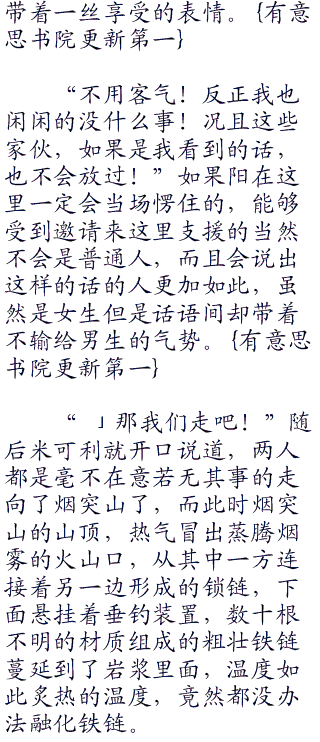 带着一丝享受的表情。{有意
思书院更新第一}
“不用客气！反正我也
闲闲的没什么事！况且这些
家伙，如果是我看到的话，
也不会放过！”如果阳在这
里一定会当场愣住的，能够
受到邀请来这里支援的当然
不会是普通人，而且会说出
这样的话的人更加如此，虽
然是女生但是话语间却带着
不输给男生的气势。{有意思
书院更新第一}
“ 」那我们走吧！”随
后米可利就开口说道，两人
都是毫不在意若无其事的走
向了烟突山了，而此时烟突
山的山顶，热气冒出蒸腾烟
雾的火山口，从其中一方连
接着另一边形成的锁链，下
面悬挂着垂钓装置，数十根
不明的材质组成的粗壮铁链
蔓延到了岩浆里面，温度如
此炙热的温度，竟然都没办
法融化铁链。